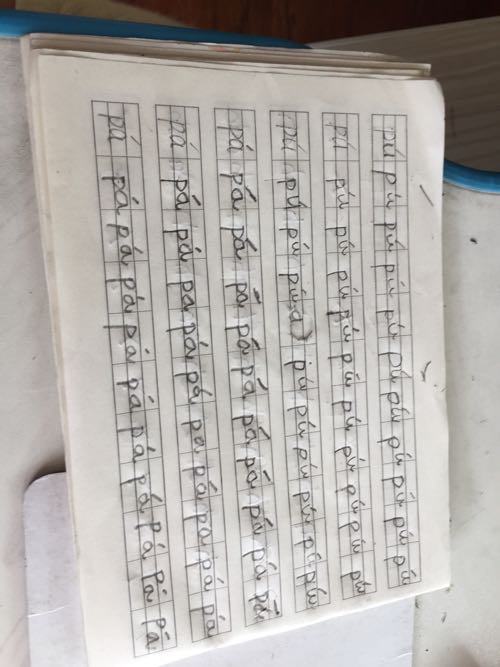 pá pá pá pá pá pá pá pá pá pá pá
pá pá pá pá pá pá pá pá pá pá pá
pá pá pá pá pá pá pá pá pú pá pá
pú pú pú pú pú pú pú pú pú pú
pú pú pú pú pú pú pú pú pú pú pú
pú pú pú pú pú pú pú pú pú pú pú